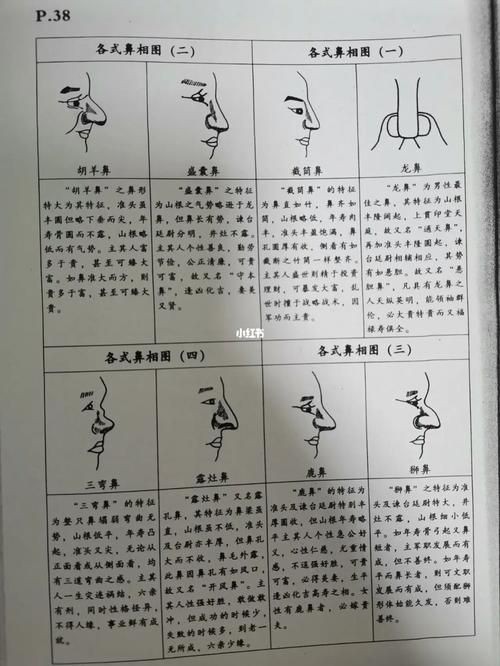 P.38
各式鼻相图(二)
各式鼻相图(一)
胡羊鼻
盛囊鼻
截筒鼻
龙鼻
"胡羊鼻"之鼻形
特大为其特征，准头虽
丰圆但略下垂而尖，年
寿骨圆而不露，山根略
低而有气势。主其人富
多于贵，甚至可臻大
富。如鼻准大而方，则
贵多于富，甚至可臻大
贵。
"盛囊鼻"之特征
为山根之气势略逊于龙
鼻，但鼻长有势，谏台
廷尉分明，井灶不露。
主其人个性善良，勤劳
节俭，公正清廉，可贵
可富，故又名"守本
鼻"，逢凶化吉，妻美
又贤。
"截筒鼻"的特征
为鼻直如竹，鼻齐如
筒，山根略低，年寿肉
丰，准头丰盈饱满，鼻
孔圆厚有收，侧看有如
截断之竹筒一样整齐。
主其人盛世则精于投资
理财，可暴发大富，乱
世时擅于战略战术，因
军功而主贵。
"龙鼻"为男性最
佳之鼻，其特征为山根
丰隆阔起，上贯印堂天
庭，故又名"通天鼻"，
再加准头丰隆圆起，谏
台廷尉相辅相应，其势
有如悬胆。故又名"悬
胆鼻"，凡具有龙鼻之
人天纵英明，能领袖群
伦，必大贵特贵而又福
禄寿俱全。
小红书
各式鼻相图(四)
各式鼻相图(三)
三弯鼻
露灶鼻
鹿鼻
狮鼻
"三弯鼻"的特征
为整只鼻塌弱弯曲无
势，山根低平，年寿凸
起，准头又尖，无论从
正面看或从侧面看，均
有三道弯曲之感。主其
人一生灾连祸结，六亲
有刑，同时性格怪异，
不得人缘，事业鲜有成
就。
"露灶鼻"又名露
孔鼻，其特征为鼻梁虽
直，山根虽不低，准头
及台尉亦丰厚，但鼻孔
大而不收，鼻毛外露，
此鼻因鼻孔有如风口，
故又名"开风鼻"。主
其人性强好胜，敢做敢
冲，但成功的时候少，
失败的时候多，到老一
无所成，六亲少缘。
"鹿鼻"的特征为
准头及谏台廷尉特别丰
厚圆收，但山根年寿略
平主其人个性急公好
义，心性仁慈，尤重情
感，不逞强好胜，可贵
可富，必得美妻，生平
逢凶化吉高寿之相。女
性有鹿鼻者，必嫁贵
夫。
"狮鼻"之特征为准
头及谏台廷尉特大，井
灶不露，山根细小低
平。如年寿骨弓起又鼻
短者，主军职发展而有
成，但不善终。如年寿
平而鼻长者，则可文职
发展而有成，但须配狮
形体始能久发，否则难
善终。